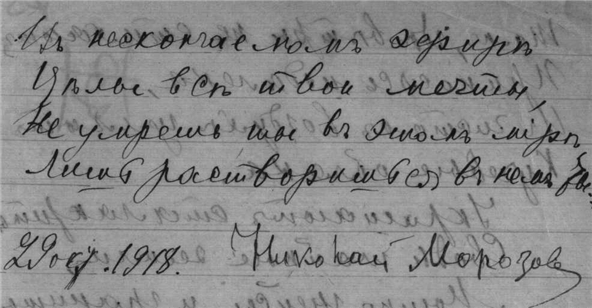 Въ нескончаемомъ эфирѣ
Цѣлы всѣ твои мечты,
Не умрешь ты въ этомъ мірѣ
Лишь растворишься въ немъ ты.
29 окт. 1918. Николай Морозовъ